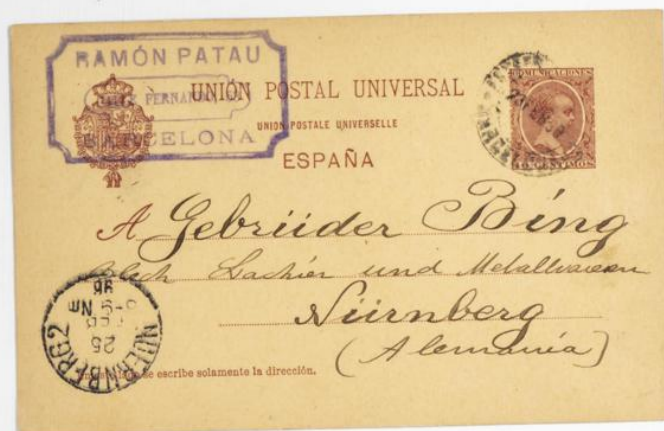 RAMÓN PATAU
FERNANDO
BARCELONA
UNIÓN POSTAL UNIVERSAL
UNION POSTALE UNIVERSELLE
ESPAÑA
COMUNICACIONES
10 CENTIMOS
A Gebrüder Bing
Blech Lackier und Metallwaren
Nürnberg
(Alemania)
NUERNBERG 2
25
FEB
8-9 NM
96
se escribe solamente la dirección.